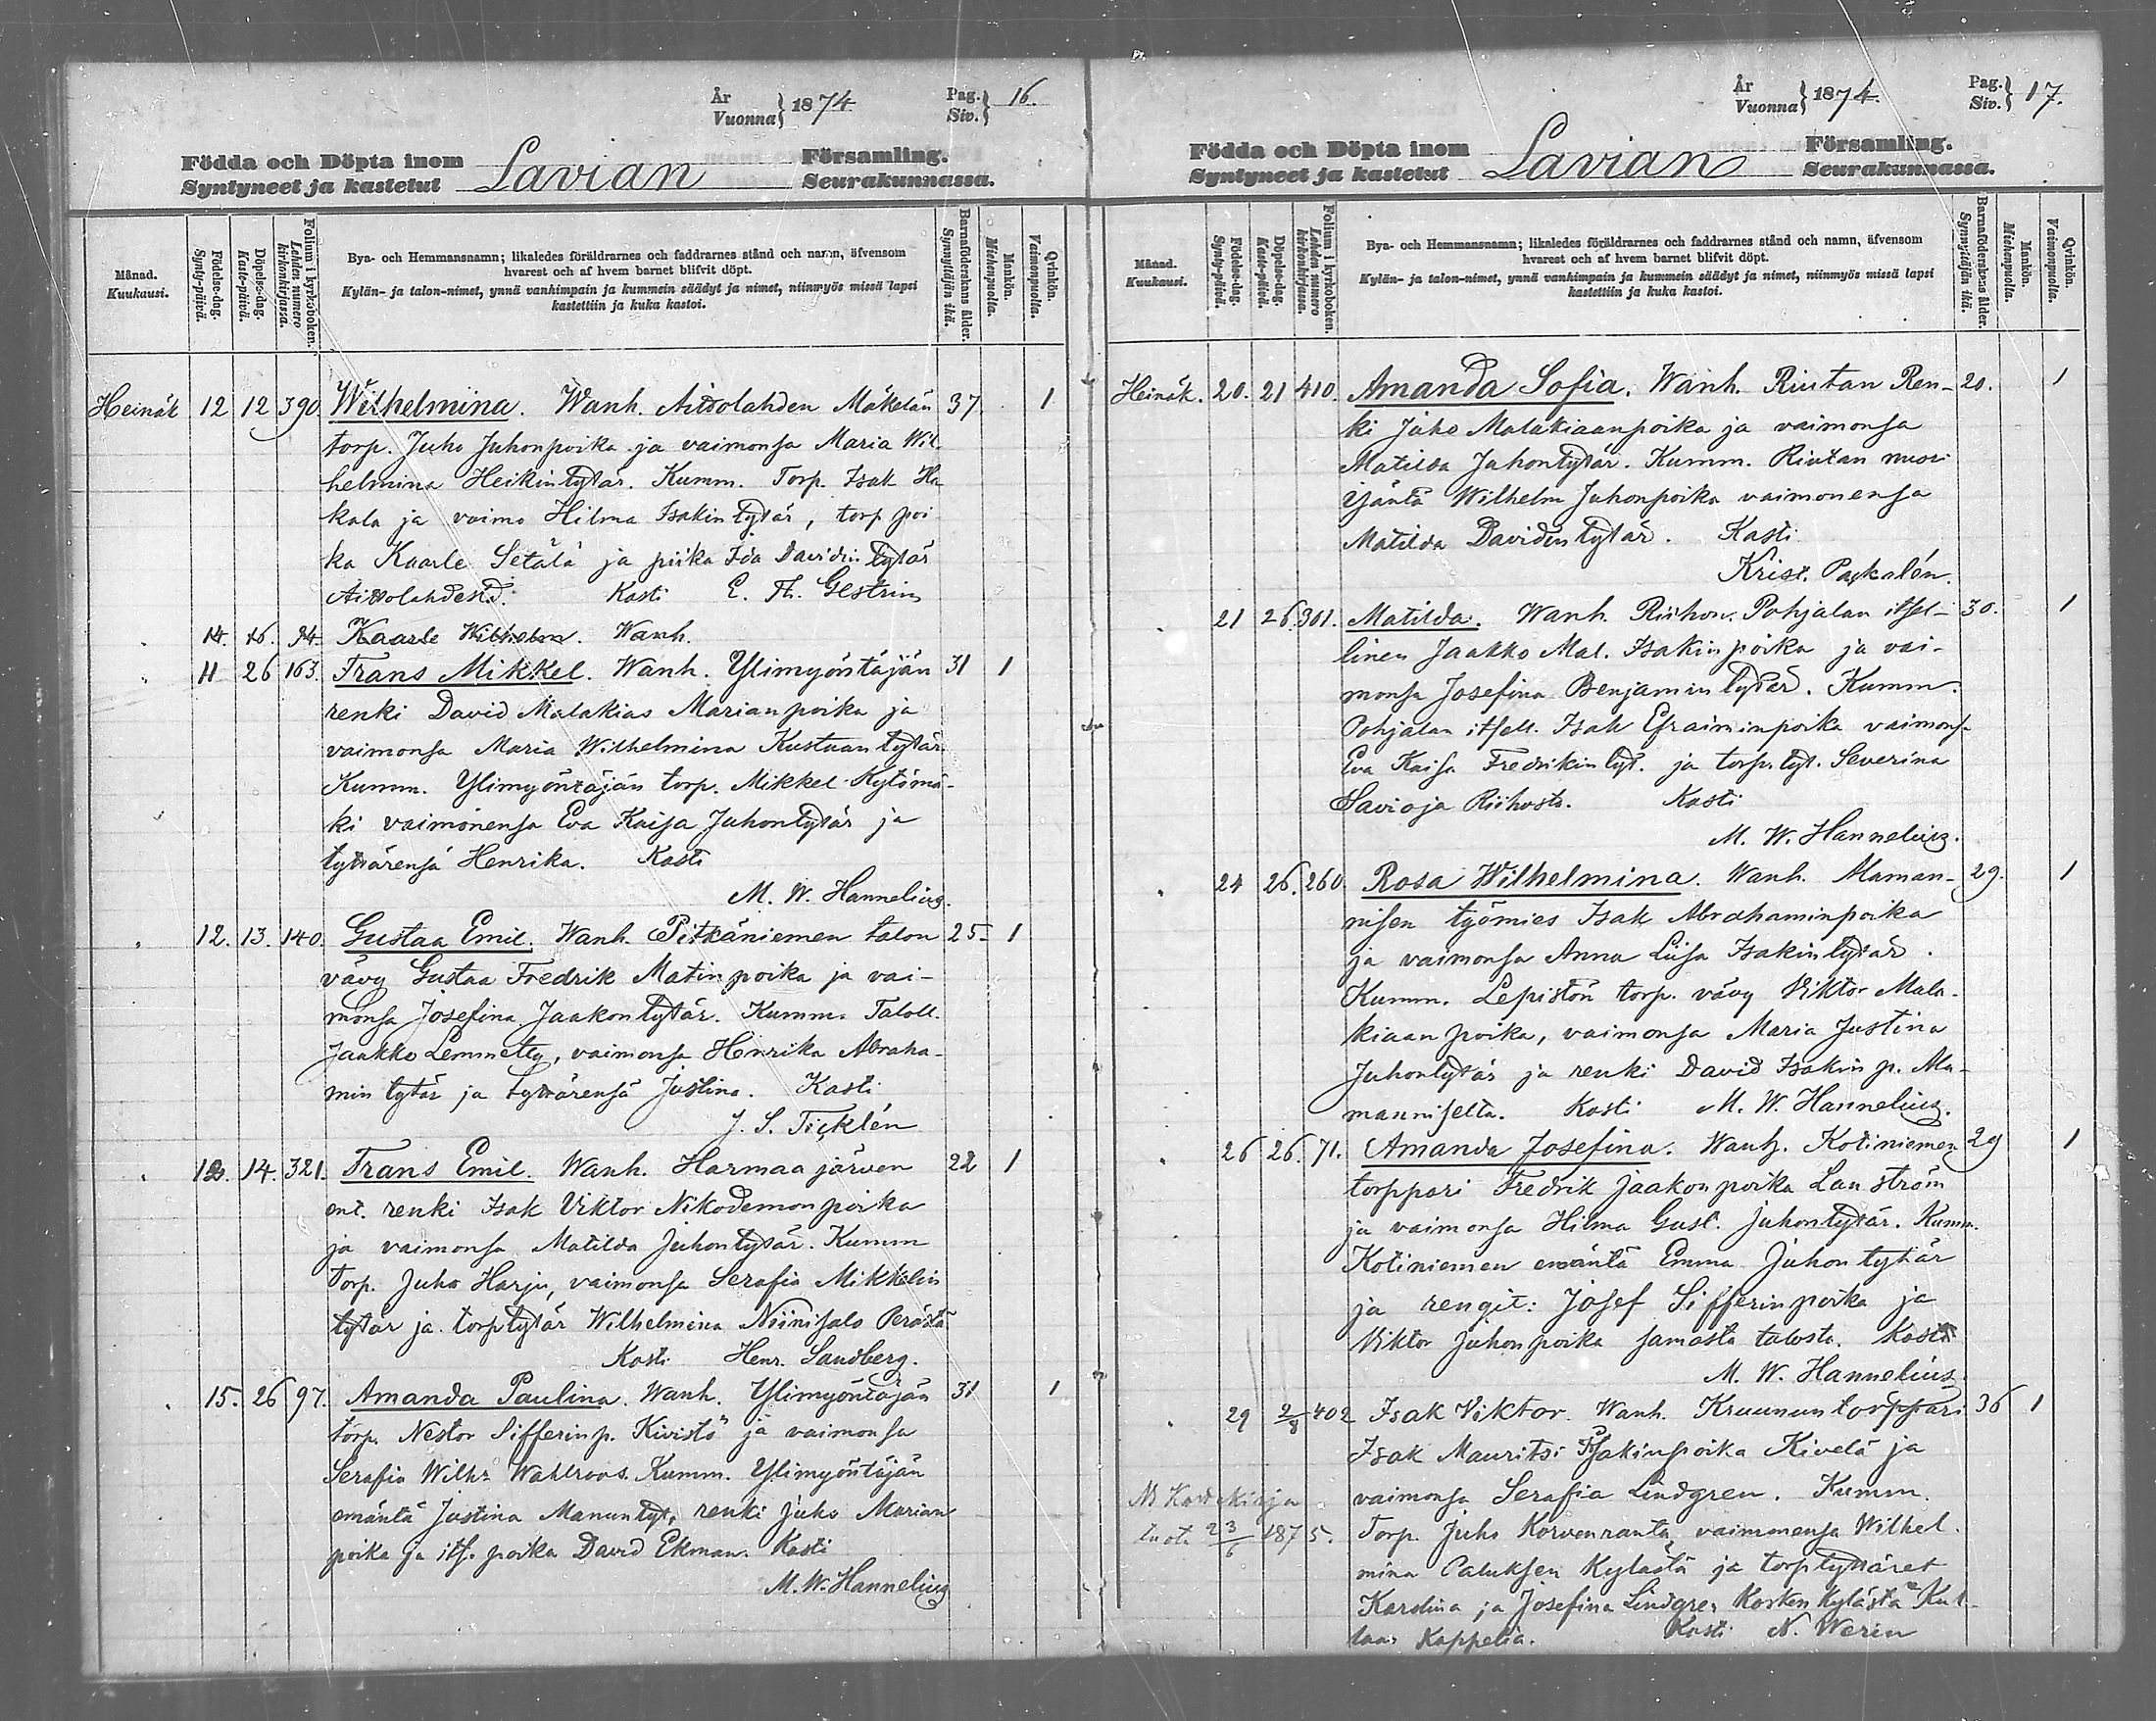 År
Vuonna } 1874
Pag.
Siv. } 16.
Födda och Döpta inom Lavian Församling.
Syntyneet ja kastetut Seurakunnassa.
Månad.
Kuukausi.
Födelse-dag.
Synty-päivä.
Döpelse-dag.
Kaste-päivä.
Folium i kyrkoboken.
Lehden numero kirkonkirjassa.
Bya- och Hemmansnamn; likaledes föräldrarnes och faddrarnes stånd och namn, äfvensom
hvarest och af hvem barnet blifvit döpt.
Kylän- ja talon-nimet, ynnä vanhimpain ja kummein säädyt ja nimet, niinmyös missä lapsi
kastettiin ja kuka kastoi.
Barnaföderskans ålder.
Synnyttäjän ikä.
Mankön.
Miehenpuolia.
Qvinkön.
Vaimonpuolia.
Heinäk 12 12 390. Wilhelmina. Wanh. Aittolahden Mäkelän 37 1
torp. Juho Juhonpoika ja vaimonsa Maria Wil
helmina Heikintytär. Kumm. Torp. Isak Ha
kala ja vaimo Hilma Isakintytär, torp poi
ka Kaarle Setälä ja piika Ida Davidin tytär
Aittolahdesta. Kasti E. Th. Gestrin
14. 16. 94. Kaarle Wilhelm. Wanh.
11 26 163. Frans Mikkel. Wanh. Ylimyöntäjän 31 1
renki David Malakias Marianpoika ja
vaimonsa Maria Wilhelmina Kustaantytär
Kumm. Ylimyöntäjän torp. Mikkel Kytömä-
ki vaimonensa Eva Kaisa Juhontytär ja
tyttärensä Henrika. Kasti
M. W. Hannelius.
12. 13. 140. Gustaa Emil. Wanh. Pitkäniemen talon 25 1
vävy Gustaa Fredrik Matinpoika ja vai-
monsa Josefina Jaakontytär. Kumm. Taloll.
Jaakko Lemmetty, vaimonsa Henrika Abraha-
min tytär ja tyttärensä Justina. Kasti
J. S. Ticklén
12. 14. 321. Frans Emil. Wanh. Harmaajärven 22 1
ent. renki Isak Viktor Nikodemonpoika
ja vaimonsa Matilda Juhontytär. Kumm
Torp. Juho Harju, vaimonsa Serafia Mikkelin
tytär ja torptytär Wilhelmina Niinisalo Perästä
Kasti Henr. Sandberg.
15. 26 97. Amanda Paulina. Wanh. Ylimyöntäjän 31 1
torp. Nestor Sifferinp. Kivistö ja vaimonsa
Serafia Wilh:a Wahlroos. Kumm. Ylimyöntäjän
emäntä Justina Manuntyt, renki Juho Marian
poika ja its. poika David Ekman. Kasti
M. W. Hannelius
År
Vuonna } 1874.
Pag.
Siv. } 17.
Födda och Döpta inom Lavian Församling.
Syntyneet ja kastetut Seurakunnassa.
Månad.
Kuukausi.
Födelse-dag.
Synty-päivä.
Döpelse-dag.
Kaste-päivä.
Folium i kyrkoboken.
Lehden numero kirkonkirjassa.
Bya- och Hemmansnamn; likaledes föräldrarnes och faddrarnes stånd och namn, äfvensom
hvarest och af hvem barnet blifvit döpt.
Kylän- ja talon-nimet, ynnä vanhimpain ja kummein säädyt ja nimet, niinmyös missä lapsi
kastettiin ja kuka kastoi.
Barnaföderskans ålder.
Synnyttäjän ikä.
Mankön.
Miehenpuolia.
Qvinkön.
Vaimonpuolia.
Heinäk. 20. 21 410. Amanda Sofia. Wanh. Riutan Ren- 20. 1
ki Juho Malakiaanpoika ja vaimonsa
Matilda Juhontytär. Kumm. Riutan nuori
isäntä Wilhelm Juhonpoika vaimonensa
Matilda Davidintytär. Kasti
Krist. Paskalén.
21 26. 301. Matilda. Wanh. Riihon Pohjalan itsel- 30. 1
linen Jaakko Mat. Isakinpoika ja vai-
monsa Josefina Benjamintytär. Kumm.
Pohjalan itsell. Isak Efraiminpoika vaimons.
Eva Kaisa Fredrikintyt. ja torp. tyt. Severina
Savioja Riihosta. Kasti
M. W. Hannelius.
24 26. 260. Rosa Wilhelmina. Wanh. Alaman- 29. 1
nisen työmies Isak Abrahaminpoika
ja vaimonsa Anna Liisa Isakintytär.
Kumm. Lepistön torp. vävy Viktor Mala-
kiaanpoika, vaimonsa Maria Justina
Juhontytär ja renki David Isakin p. Ala-
manniselta. Kasti M. W. Hannelius.
26 26. 71. Amanda Josefina. Wanh. Kotiniemen 29 1
torppari Fredrik Jaakonpoika Lanström
ja vaimonsa Hilma Gust. Juhontytär. Kumm.
Kotiniemen emäntä Emma Juhontytär
ja rengit: Josef Sifferinpoika ja
Viktor Juhonpoika samasta talosta. Kasti
M. W. Hannelius
29 2/8 402 Isak Viktor. Wanh. Kruununtorppari 36 1
Isak Mauritsi Isakinpoika Kivelä ja
vaimonsa Serafia Lindgren. Kumm.
Torp. Juho Korvenranta, vaimonensa Wilhel-
mina Paluksen Kylästä ja torptyttäret
Karolina ja Josefina Lindgren Kosken kylästä Kul-
laan Kappelia. Kasti N. Werin
tuotu 23/6 1875.